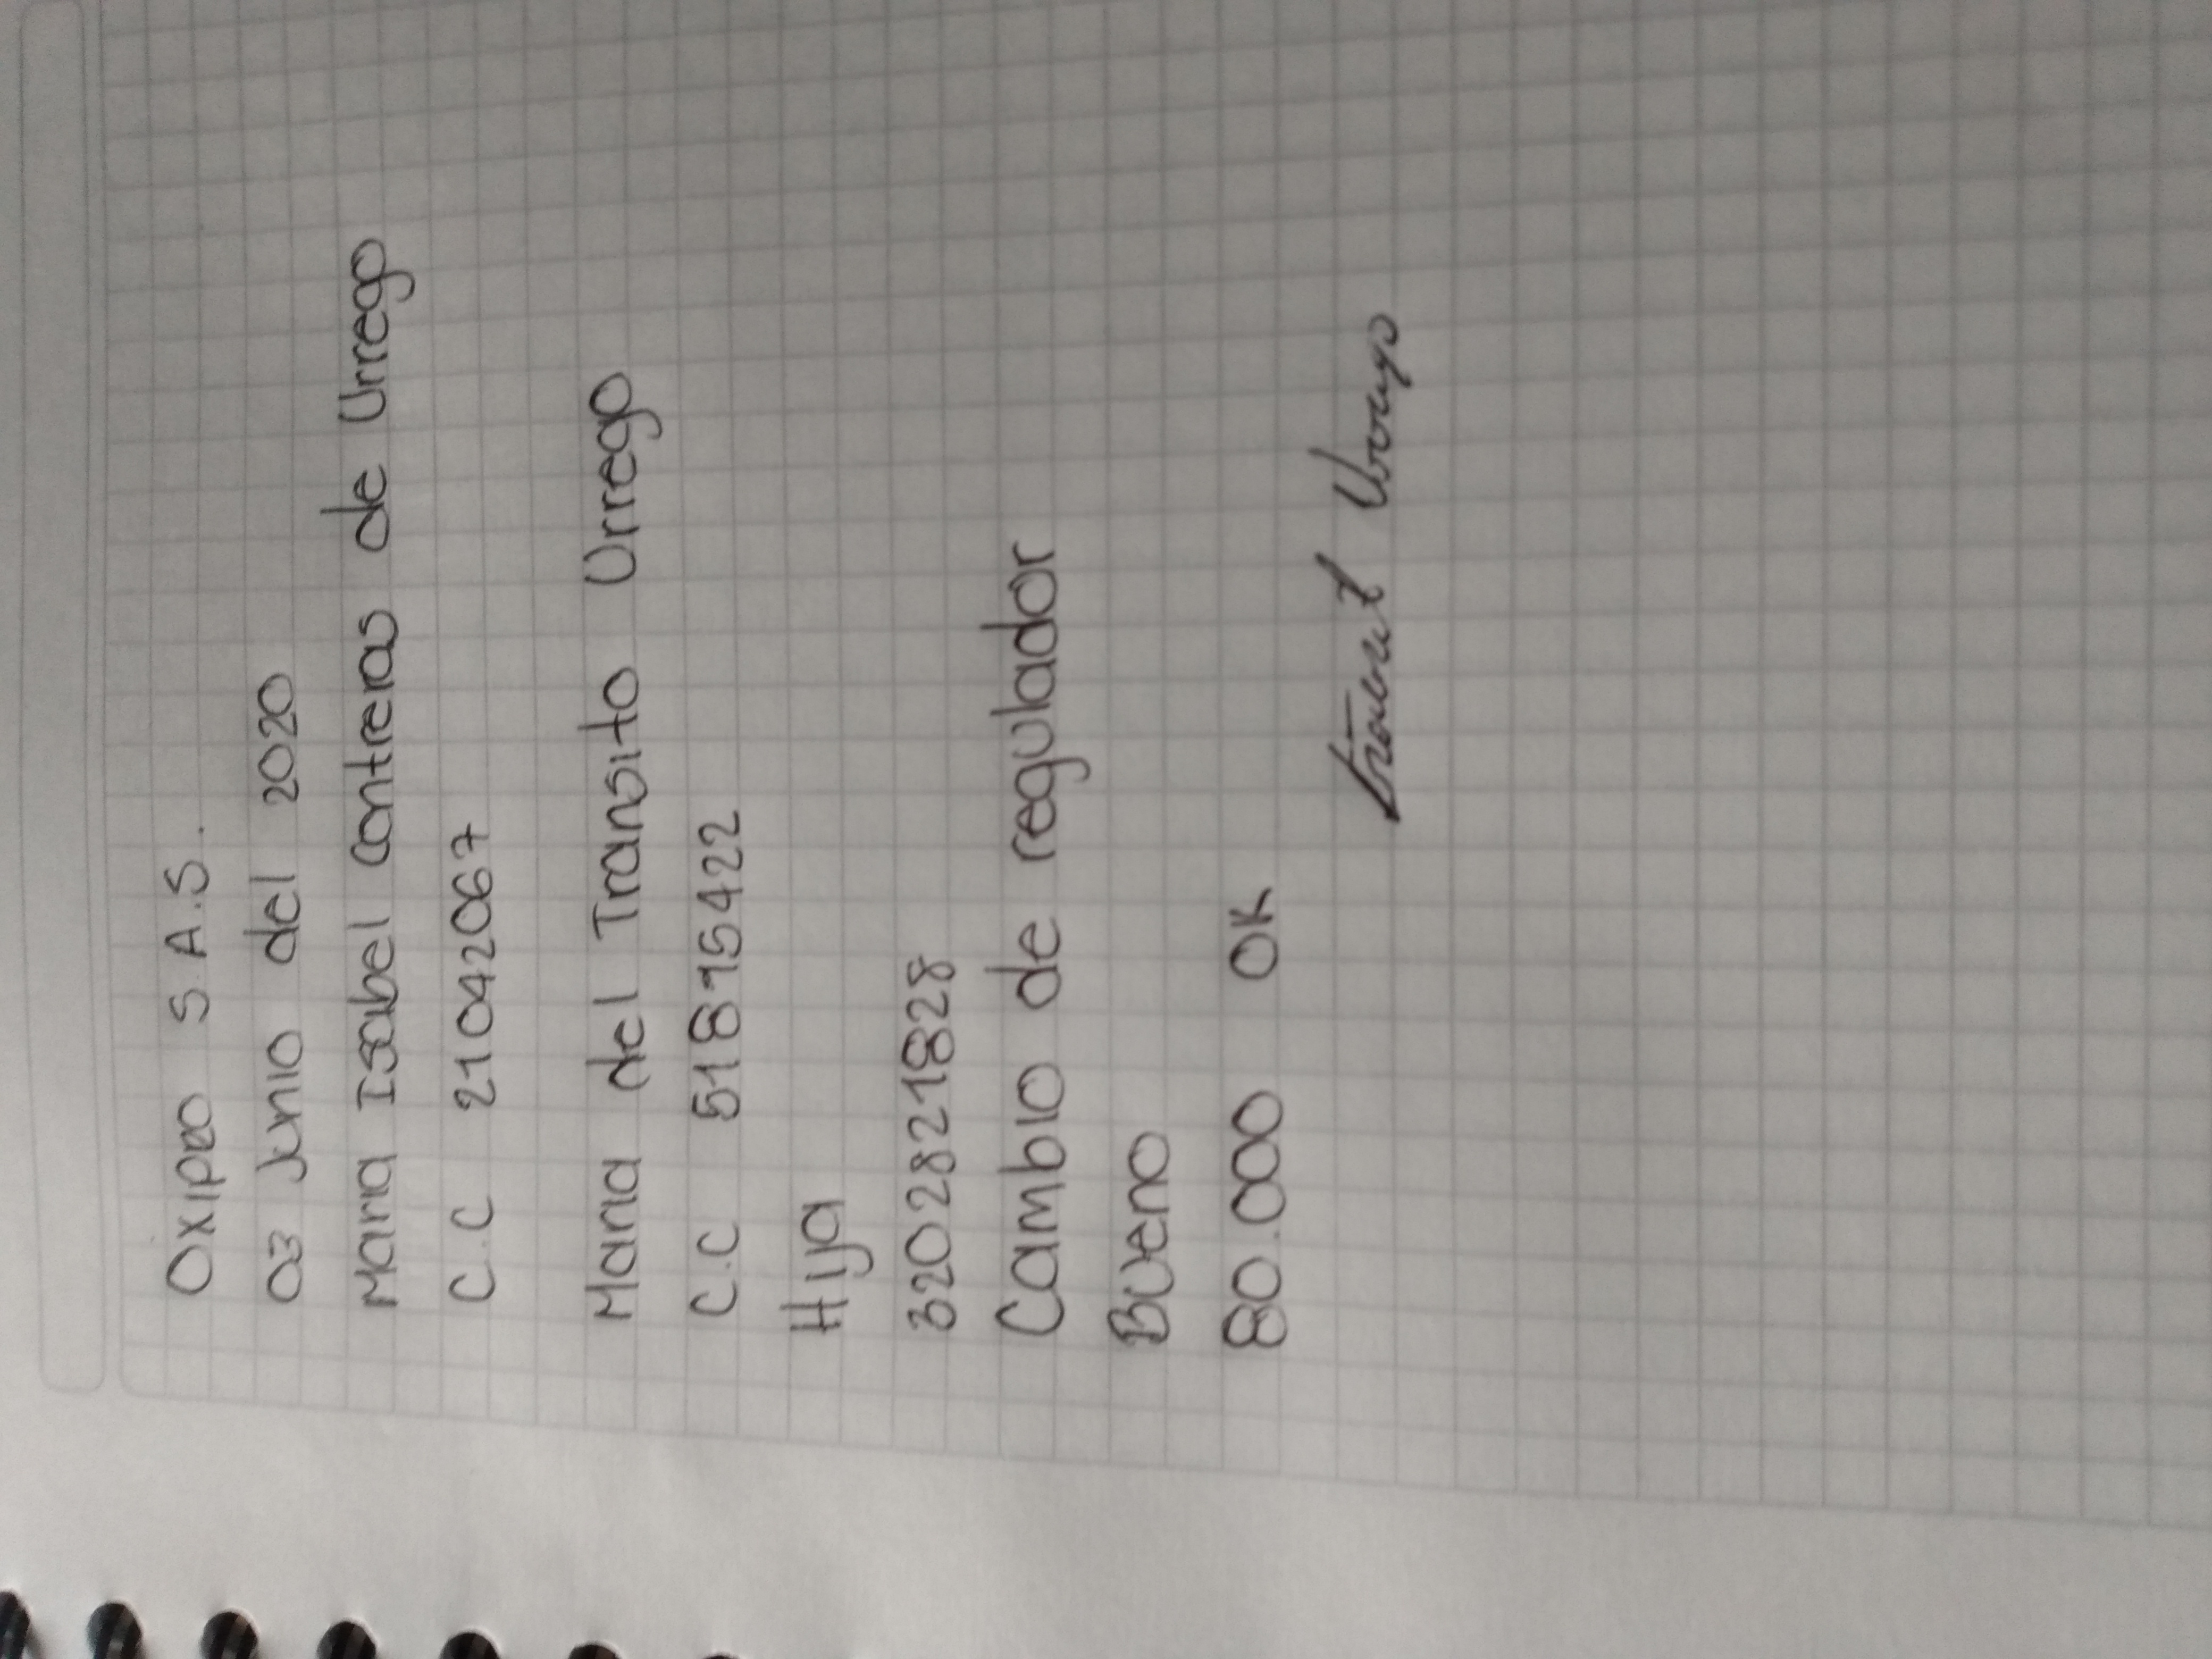 Oxipro S A.S.
03 Junio del 2020
Maria Isabel Contreras de Urrego
C.C 21042067
Maria del Transito Urrego
C.C 51895422
Hija
3202821828
Cambio de regulador
Bueno
80.000 OK
Urrego